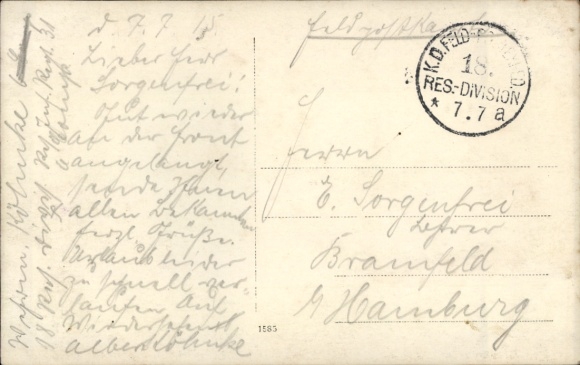 d 7.7 15
Lieber Herr
Sorgenfrei!
Gut wieder
an der Front
angelangt,
sende Ihnen
allen Bekannten
herzl. Grüße.
Urlaub leider
zu schnell ver-
laufen. Auf
Wiedersehen
Albert Köhnke
Wehrm. Köhnke
18 Res. Divis. Res. Inf. Regt. 31
Feldpostkarte
K.D. FELD-
18.
RES.-DIVISION
* 7.7 a
Herrn
E. Sorgenfrei
Lehrer
Bramfeld
b/ Hamburg
1585